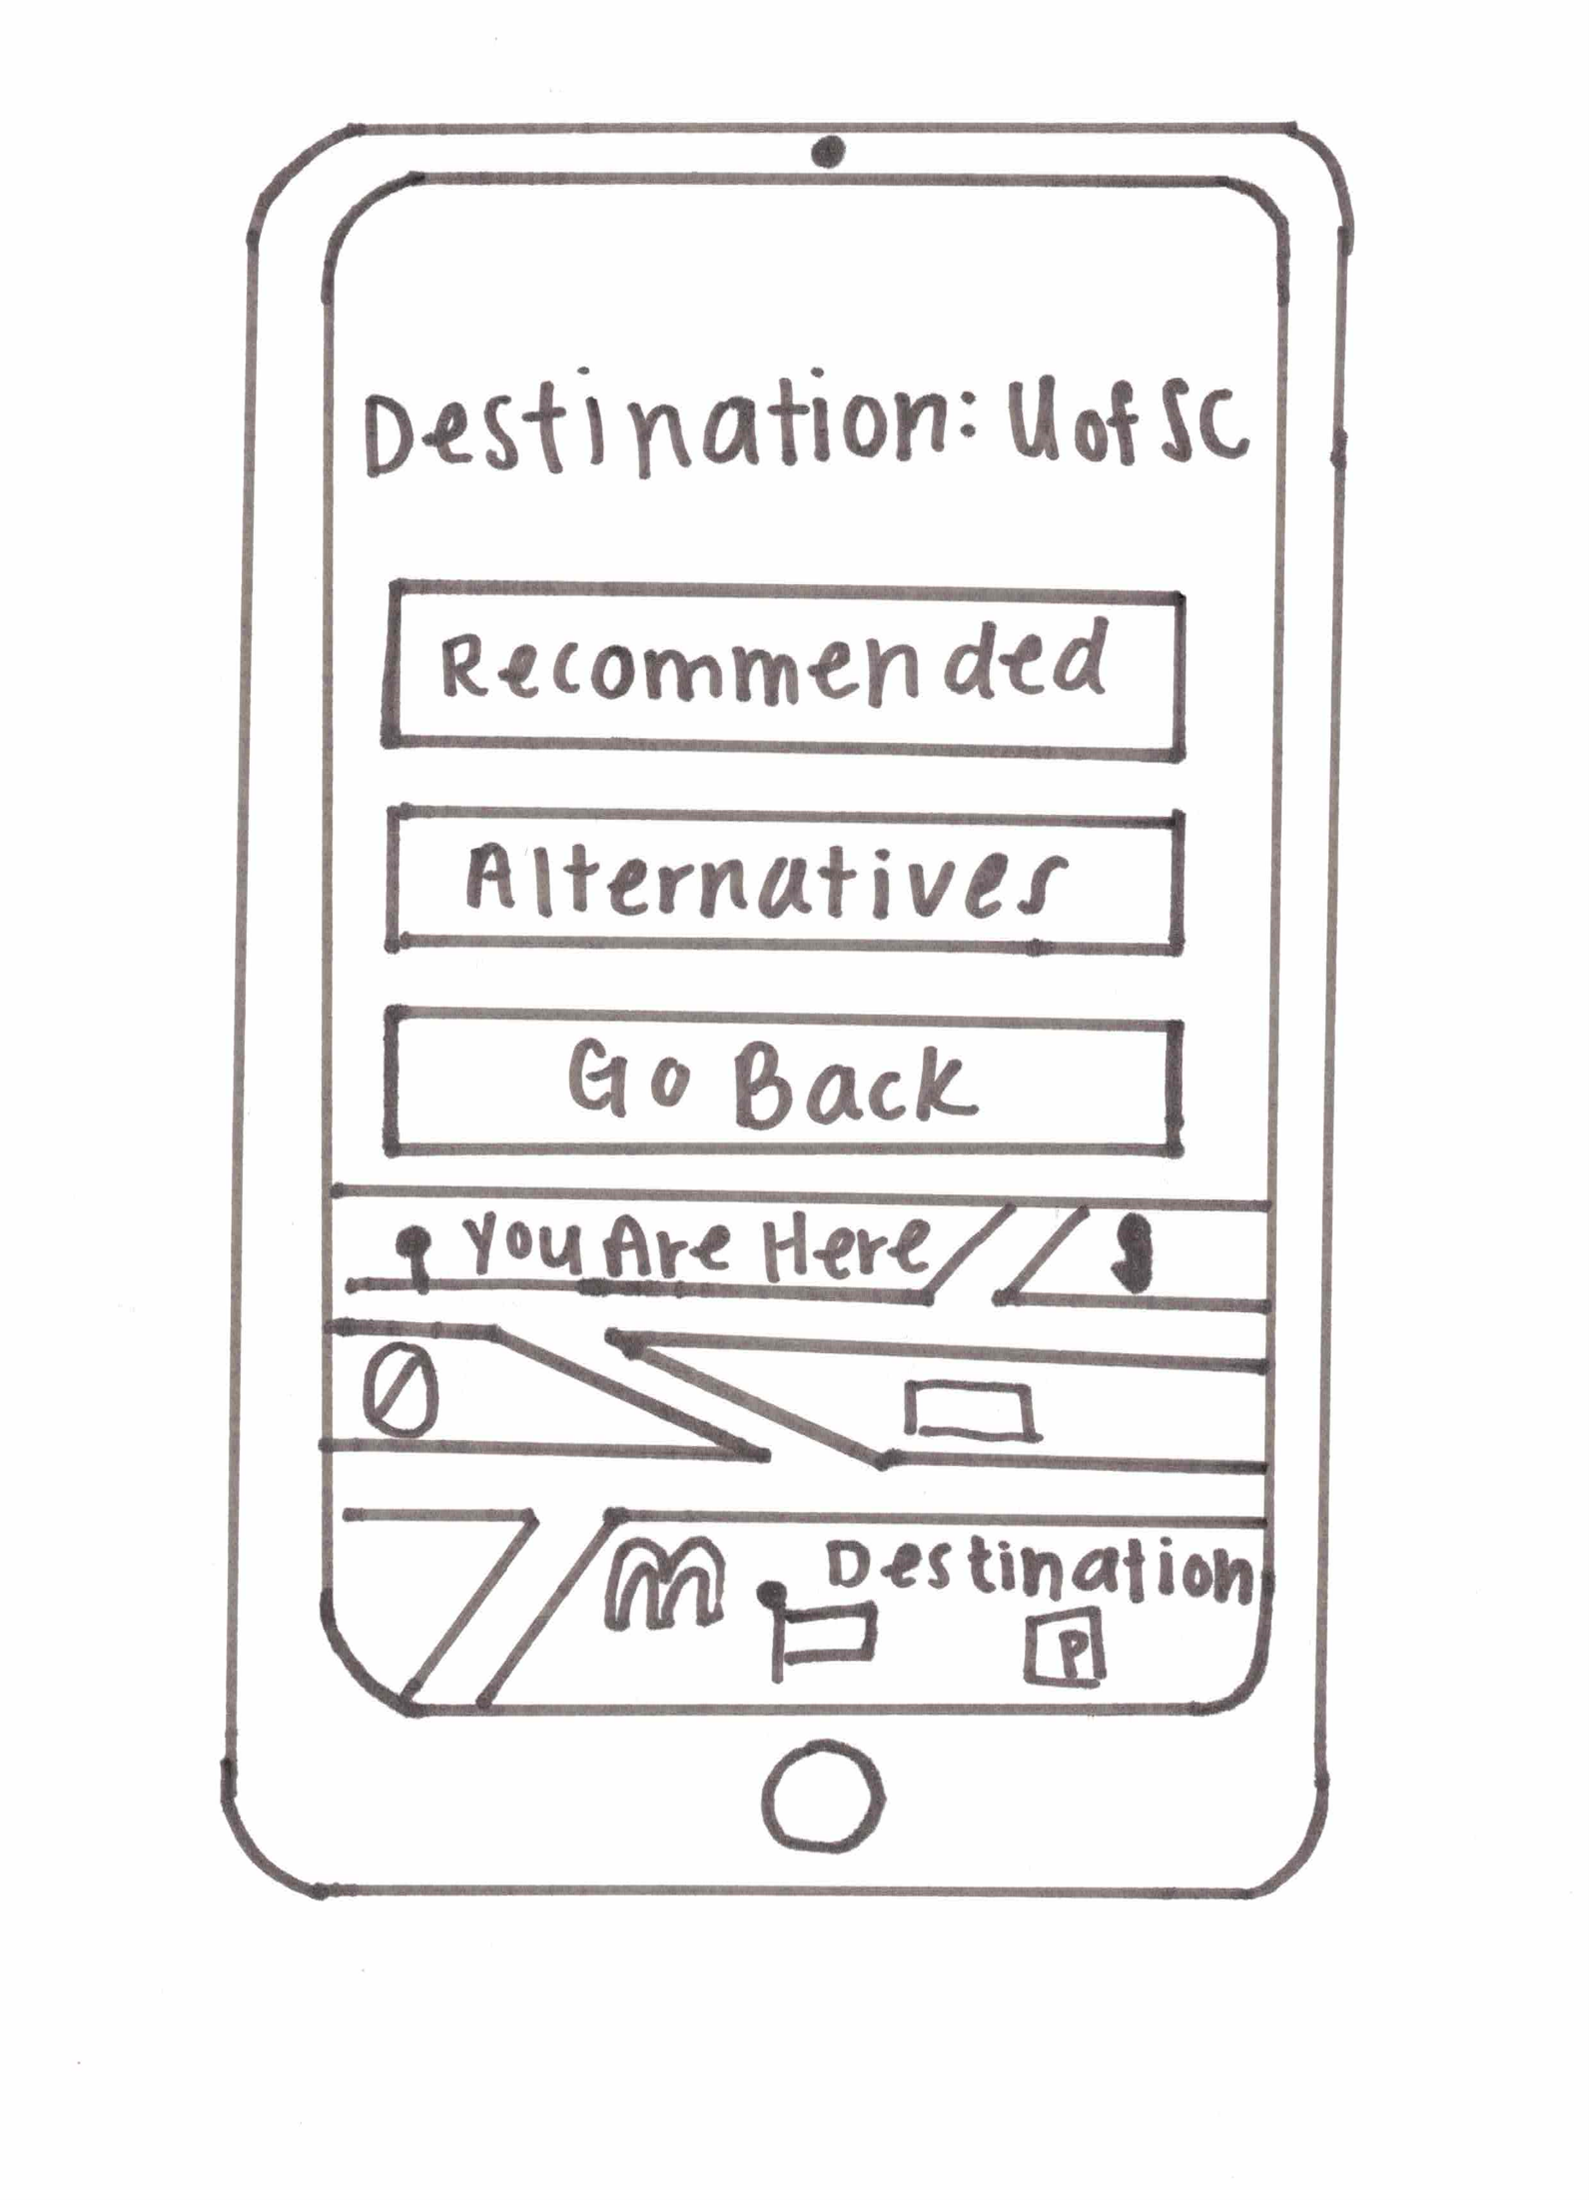 Destination: U of SC
Recommended
Alternatives
Go Back
You Are Here
Destination
P